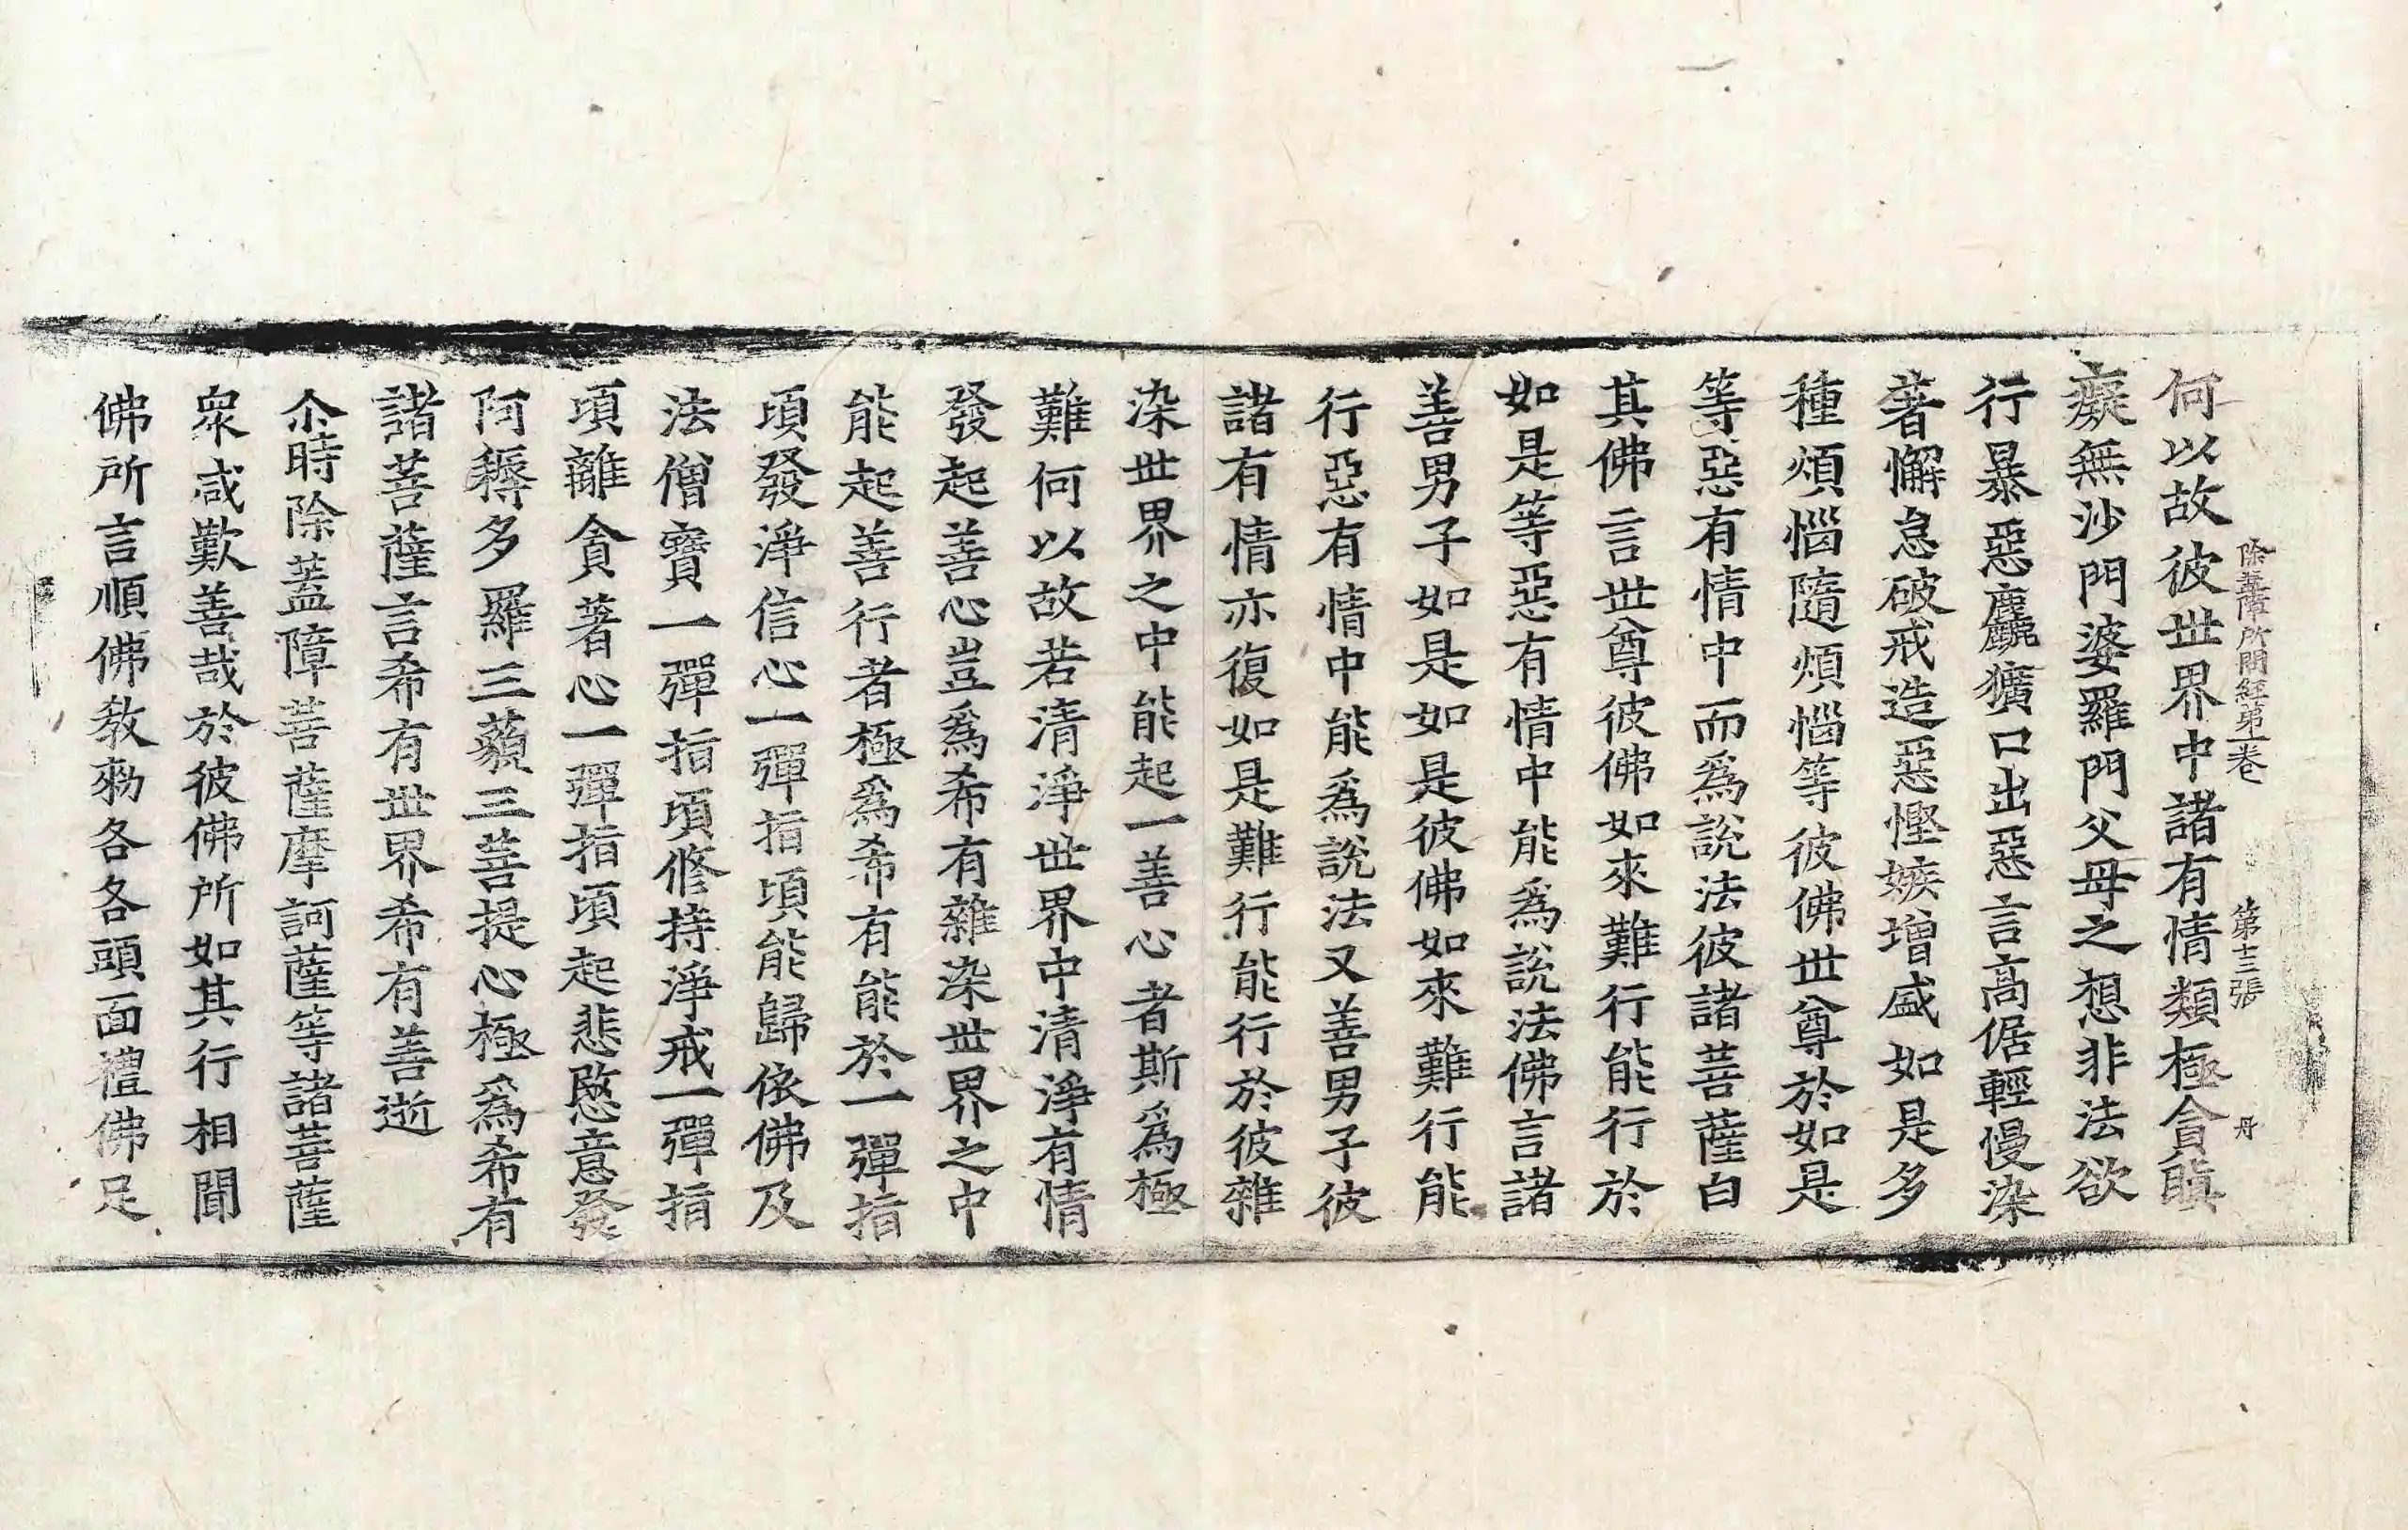 何以故彼世界中諸有情類極貪瞋
除蓋障所問經第一卷　第十三張　丹
癡無沙門婆羅門父母之想非法欲
行暴惡麤獷口出惡言高倨輕慢染
著懈怠破戒造惡慳嫉增盛如是多
種煩惱隨煩惱等彼佛世尊於如是
等惡有情中而爲說法彼諸菩薩白
其佛言世尊彼佛如來難行能行於
如是等惡有情中能爲說法佛言諸
善男子如是如是彼佛如來難行能
行惡有情中能爲說法又善男子彼
諸有情亦復如是難行能行於彼雜
染世界之中能起一善心者斯爲極
難何以故若清淨世界中清淨有情
發起善心豈爲希有雜染世界之中
能起善行者極爲希有能於一彈指
頃發淨信心一彈指頃能歸依佛及
法僧寶一彈指頃修持淨戒一彈指
頃離貪著心一彈指頃起悲愍意發
阿耨多羅三藐三菩提心極爲希有
諸菩薩言希有世界希有善逝
尒時除蓋障菩薩摩訶薩等諸菩薩
衆咸歎善哉於彼佛所如其行相聞
佛所言順佛教勑各各頭面禮佛足